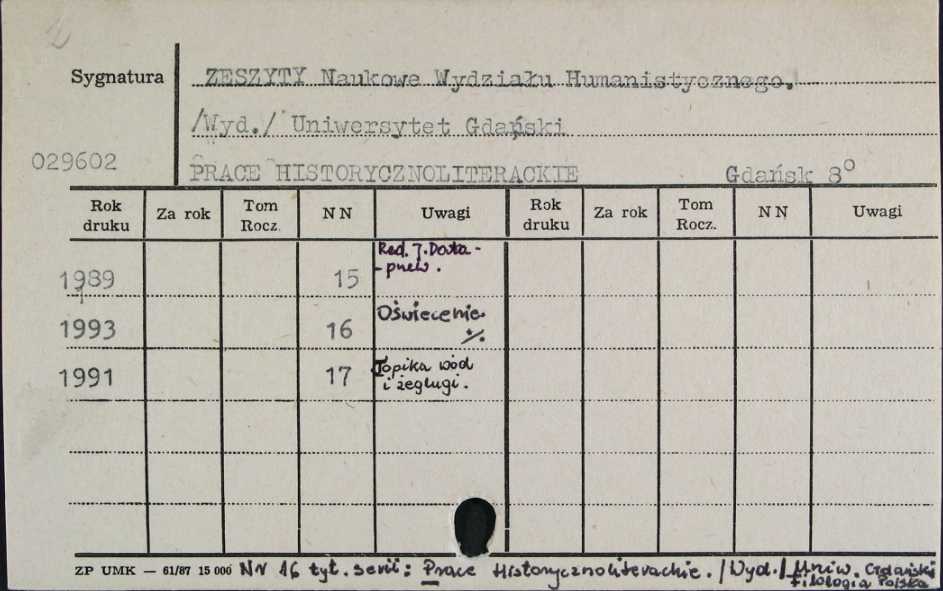 Sygnatura ZESZYTY Naukowe Wydziału Humanistycznego.
/Wyd./ Uniwersytet Gdański
029602 PRACE HISTORYCZNOLITERACKIE Gdańsk 8°
Rok druku Za rok Tom Rocz. NN Uwagi Rok druku Za rok Tom Rocz. NN Uwagi
1989 15 Red. J.
1993 16 Oświecenie. ⁒
1991 17 Topika wód
i żeglugi.
ZP UMK — 61/87 15 000 Nr 16 tyt. serii: Prace Historycznoliterackie. /Wyd./ Uniw. Gdański
Filologia Polska